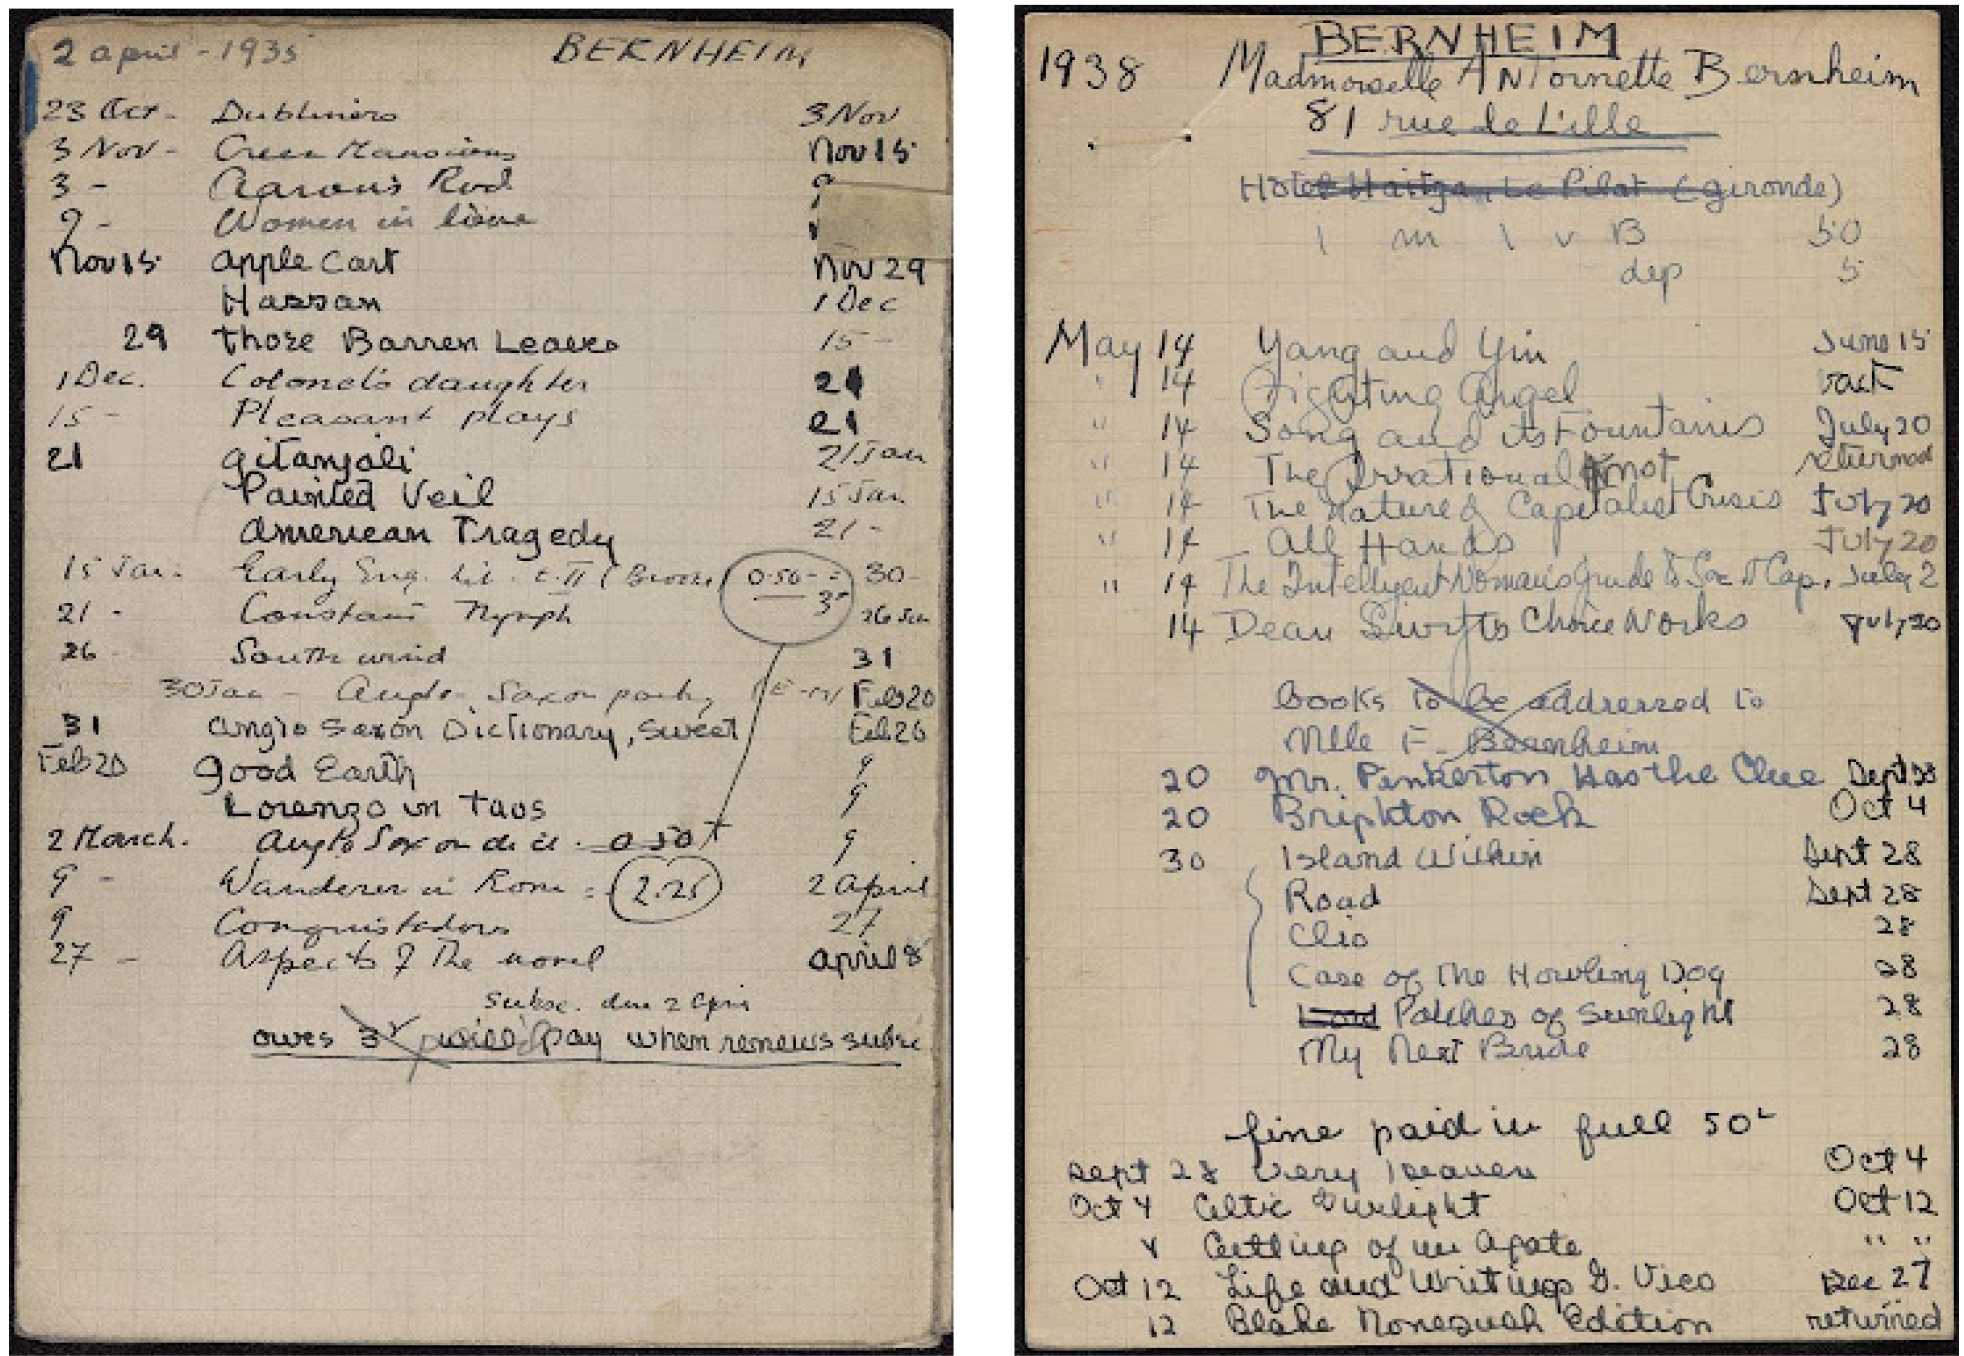 2 april - 1935 BERNHEIM
23 Oct - Dubliners 3 Nov
3 Nov - Green Mansions Nov 15
3 - Aaron's Rod 9
9 - Women in love
Nov 15 Apple Cart Nov 29
Hassan 1 Dec
29 those Barren Leaves 15 -
1 Dec. Colonel's daughter 21
15 - Pleasant plays 21
21 gitanjali 21 Jan
Painted Veil 15 Jan.
American Tragedy 21 -
15 Jan. Early Eng. Lit. t. II (Brooke) 0.50 - = 30 -
3
21 - Constant Nymph 26 Jan
26 South wind 31
30 Jan - Anglo-Saxon poetry (E-M) Feb 20
31 Anglo Saxon Dictionary, Sweet Feb 26
Feb 20 Good Earth 9
Lorenzo in Taos 9
2 March. Anglo Saxon dict. 0.50 9
9 - Wanderer in Rome = 2.25 2 April
9 Conquistadors 27
27 - Aspects of the novel April 8
Subsc. due 2 April
owes 3 will pay when renews subsc
BERNHEIM
1938 Madmoiselle ANtoinette Bernheim
81 rue de L'ille
Hotel Haitza, Le Pilat (gironde)
1 m 1 v B 50
dep 5
May 14 Yang and Yin June 15
" 14 Fighting Angel back
" 14 Song and its Fountains July 20
" 14 The Irrational Knot returned
" 14 The Nature of Capitalist Crisis July 20
" 14 All Hands July 20
" 14 The Intelligent Woman's Guide to Soc & Cap. July 2
14 Dean Swift's Choice Works July 20
books to be addressed to
Mlle F. Bernheim
20 Mr. Pinkerton Has the Clue Sept 28
20 Brighton Rock Oct 4
30 Island Within Sept 28
Road Sept 28
Clio 28
Case of the Howling Dog 28
Patches of Sunlight 28
My Next Bride 28
fine paid in full 50
Sept 28 Very Heaven Oct 4
Oct 4 Celtic Twilight Oct 12
4 Cutting of an Agate " "
Oct 12 Life and Writings G. Vico Dec 27
12 Blake Nonesuch Edition returned